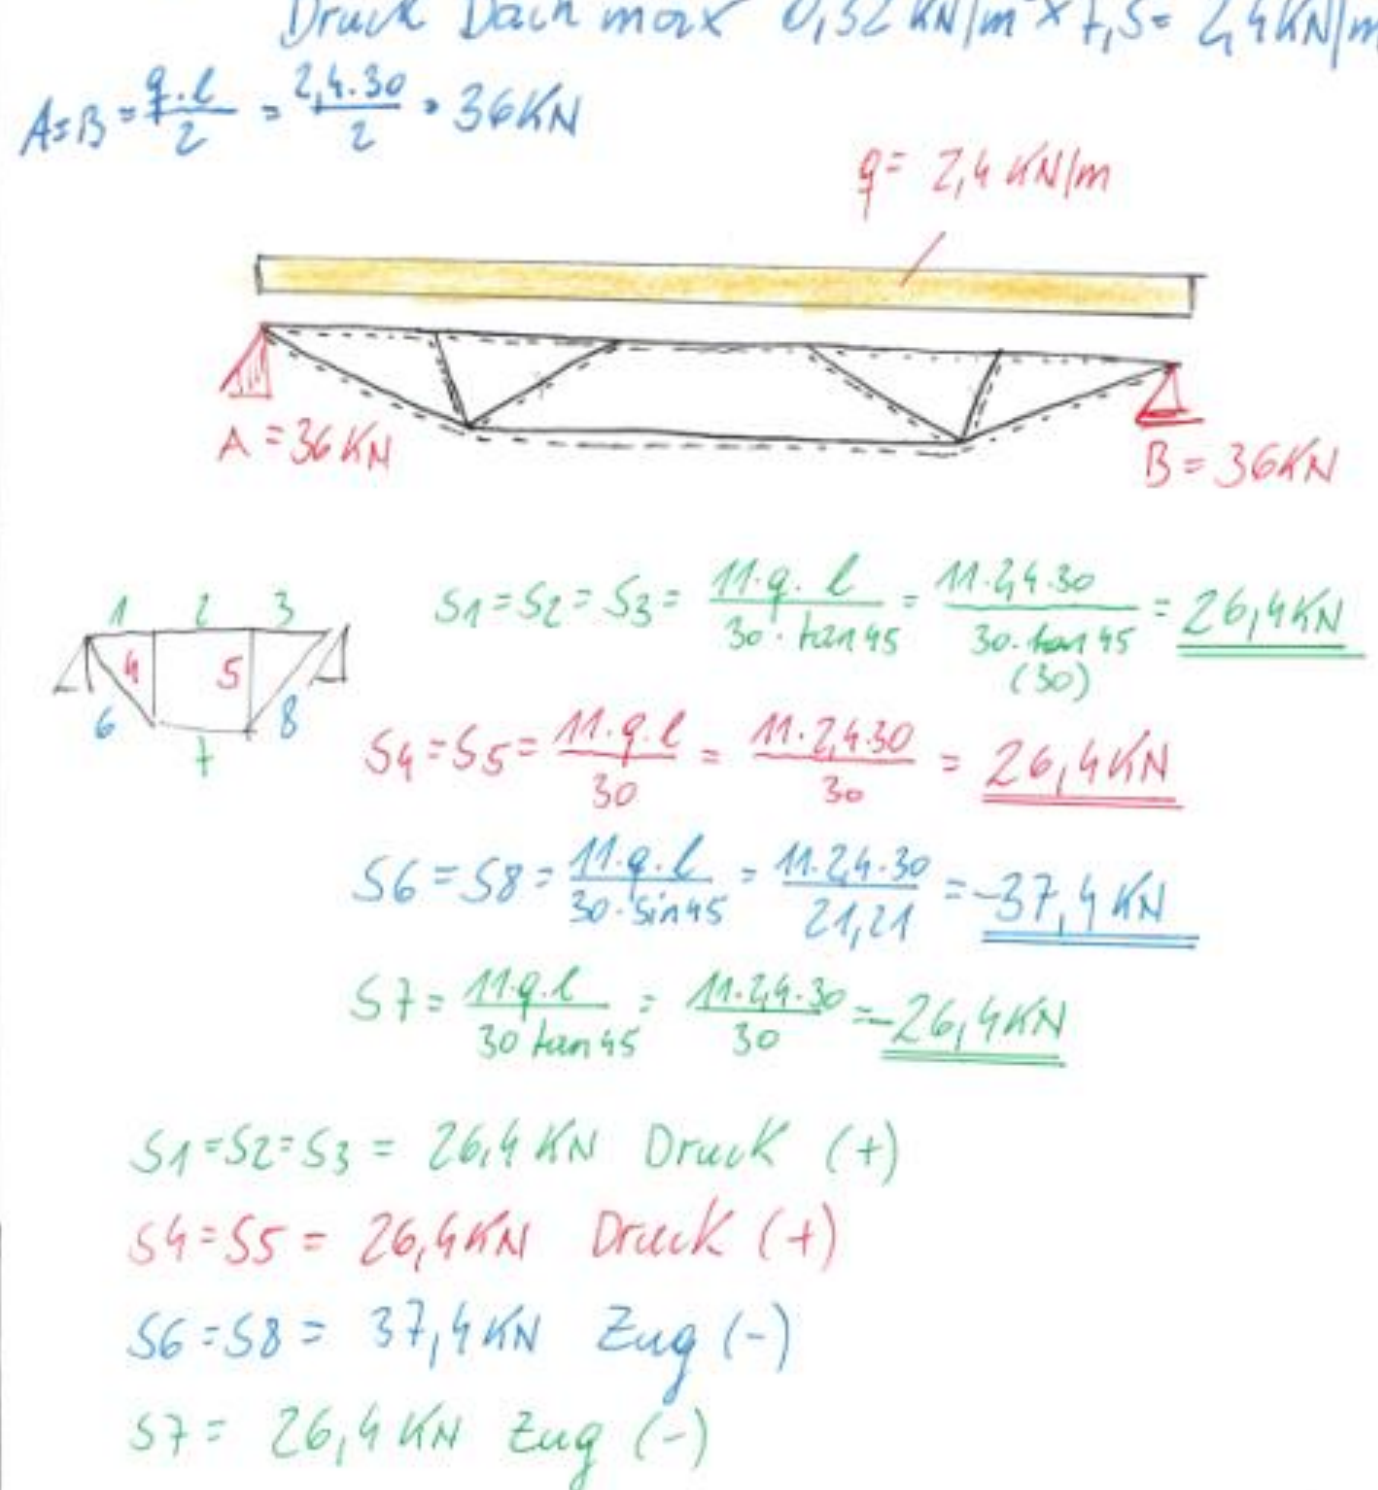 Druck Dach max 0,32 KN/m² x 7,5 = 2,4 KN/m
A=B = q·l / 2 = 2,4·30 / 2 = 36KN
q = 2,4 KN/m
A = 36KN
B = 36KN
1 2 3
4 5
6 8
7
S1 = S2 = S3 = 11·q·l / 30·tan45 = 11·2,4·30 / 30·tan45 (30) = 26,4KN
S4 = S5 = 11·q·l / 30 = 11·2,4·30 / 30 = 26,4KN
S6 = S8 = 11·q·l / 30·sin45 = 11·2,4·30 / 21,21 = -37,4KN
S7 = 11·q·l / 30 tan45 = 11·2,4·30 / 30 = -26,4KN
S1=S2=S3 = 26,4 KN Druck (+)
S4=S5 = 26,4KN Druck (+)
S6=S8 = 37,4KN Zug (-)
S7 = 26,4 KN Zug (-)